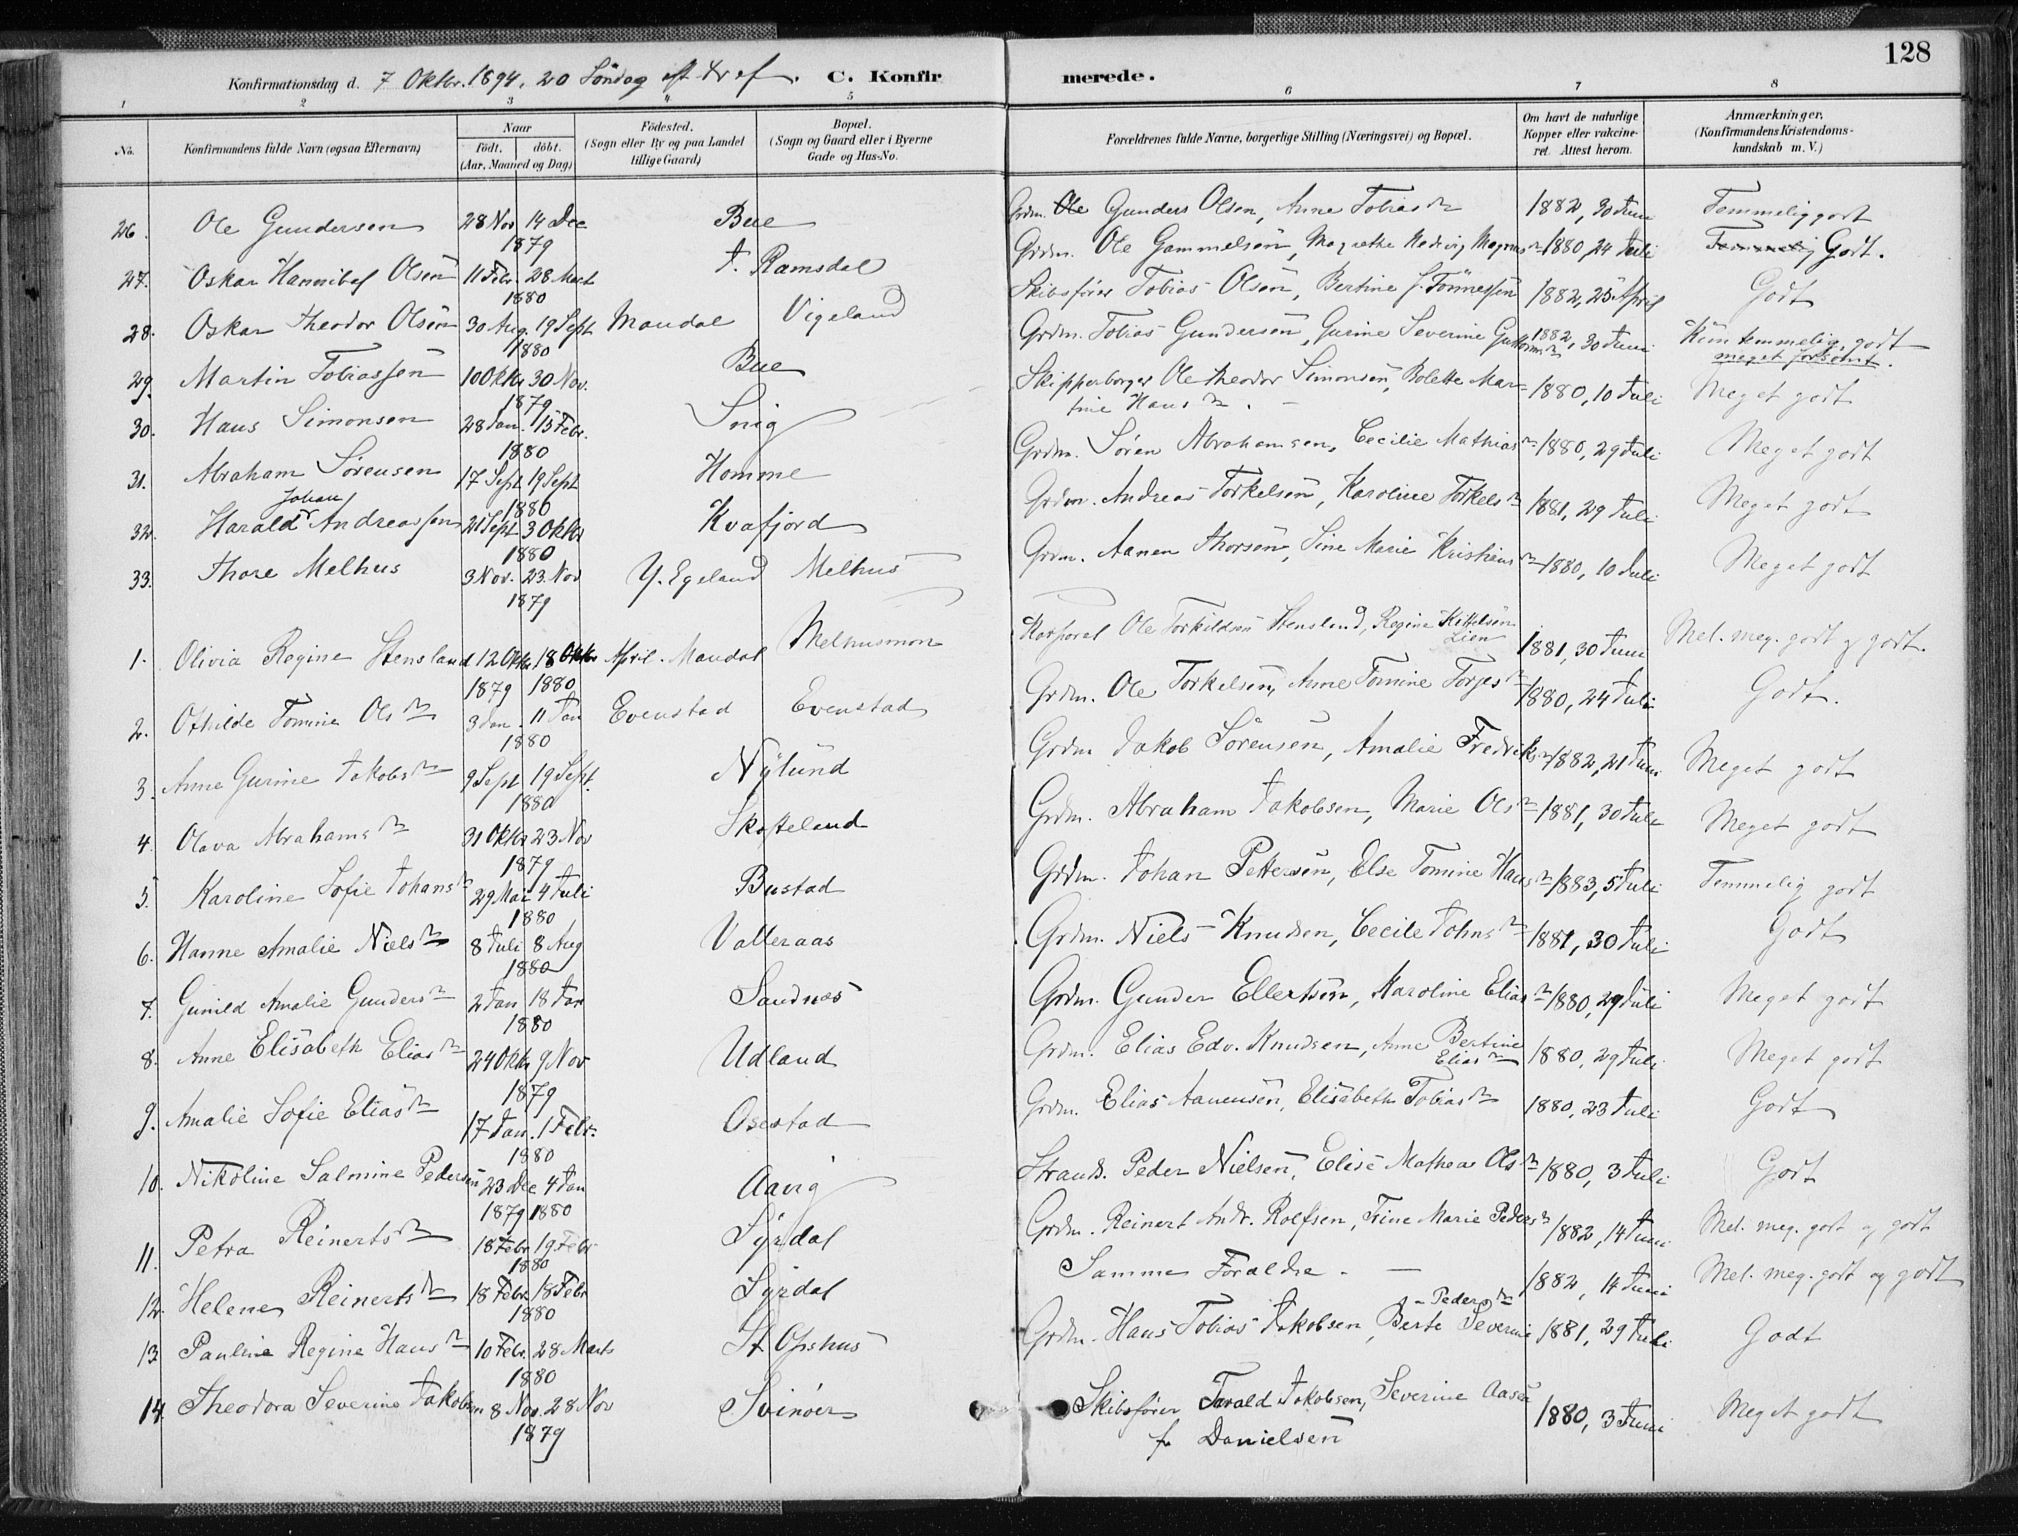 128
Konfirmationsdag d. 7 Oktbr. 1894, 20 Söndag eft tr ef. C. Konfirmerede.
1 2 3 4 5 6 7 8
No. Konfirmandens fulde Navn (ogsaa Efternavn) Naar født. døbt. (Aar, Maaned og Dag) Fødested. (Sogn eller By og paa Landet tillige Gaard) Bopæl. (Sogn og Gaard eller i Byerne Gade og Hus-No. Forældrenes fulde Navne, borgerlige Stilling (Næringsvei) og Bopæl. Om havt de naturlige Kopper eller vakcineret. Attest herom. Anmærkninger. (Konfirmandens Kristendomskundskab m. V.)
26. Ole Gundersen 28 Nov 14 Dec 1879 Bue Grdm. Ole Gunders Olsen, Anne Tobiasdr 1882, 30 Juni Temmelig godt
27. Oskar Hannibal Olsen 11 Febr. 28 Mart 1880 t. Ramsdal Grdm. Ole Gammelsen, Magrethe Hedvig Magnusdr 1880, 24 Juli Temmelig Godt.
28. Oskar Theodor Olsen 30 Aug. 19 Sept 1880 Mandal Vigeland Skibsfører Tobias Olsen, Bertine J. Tönnessen 1882, 25 April Godt
29. Martin Tobiassen 10 Oktbr 30 Nov. 1879 Bue Grdm. Tobias Gundersen, Gurine Severine Guttormsdr 1882, 30 Juni Kun temmelig godt meget forsömt.
30. Hans Simonsen 28 Jan. 15 Febr. 1880 Snig Skipperborger Ole Theodor Simonsen, Bolette Martine Hansdr. 1880, 10 Juli Meget godt
31. Abraham Sørensen 17 Sept 19 Sept 1880 Homme Grdm. Søren Abrahamsen, Cecilie Mathiasdr 1880, 29 Juli Meget godt
32. Harald Johan Andreassen 21 Sept 3 Oktbr 1880 Kvafjord Grdm. Andreas Torkelsen, Karoline Torkelsdr 1881, 29 Juli Meget godt
33. Thore Melhus 3 Nov. 23. Nov 1879 Y. Egeland Melhus Grdm. Aanen Thorsen, Sine Marie Kristensdr 1880, 10 Juli Meget godt
1. Olivia Regine Stensland 12 Oktbr 1879 18 April 1880 Mandal Melhusmon Korporal Ole Torkildsen Stensland, Regine Kittelsen Lien 1881, 30 Juni Mel. meg. godt og godt.
2. Othilde Tomine Olsdr 3 Jan. 11 Jan 1880 Evenstad Evenstad Grdm. Ole Torkelsen, Anne Tomine Torjesdr 1880, 24 Juli Godt.
3. Anne Gurine Jakobsdr 9 Sept 19 Sept. 1880 Nylund Grdm Jakob Sörensen, Amalie Fredriksdr 1882, 21 Juni Meget godt
4. Olava Abrahamsdr 31 Oktbr 23 Nov 1879 Skofteland Grdm. Abraham Jakobsen, Marie Olsdr 1881, 30 Juli Meget godt
5. Karoline Sofie Johansdr 29 Mai 4 Juli 1880 Bustad Grdm. Johan Pettersen, Else Tomine Hansdr 1883, 5 Juli Temmelig godt
6. Hanne Amalie Nielsdr 8 Juli 8 Aug 1880 Valleraas Grdm. Niels Knudsen, Cecile Johnsdr 1881, 30 Juli Godt
7. Gunild Amalie Gundersdr 2 Jan 18 Jan 1880 Sandnæs Grdm. Gunder Ellertsen, Karoline Eliasdr 1880, 29 Juli Meget godt
8. Anne Elisabeth Eliasdr 24 Oktbr 9 Nov 1879 Udland Grdm. Elias Edv. Knudsen, Anne Bertine Eliasdr 1880, 29 Juli Meget godt
9. Amalie Sofie Eliasdr 17 Jan. 1 Febr. 1880 Osestad Grdm. Elias Aanensen, Elisabeth Tobiasdr 1880, 23 Juli Godt
10. Nikoline Salmine Pedersen 23 Dec 1879 4 Jan 1880 Aavig Strands. Peder Nielsen, Elise Mathea Olsdr 1880, 3 Juli Godt
11. Petra Reinertsdr 18 Febr. 19 Febr 1880 Syrdal Grdm. Reinert Andr. Rolfsen, Trine Marie Pedersdr 1882, 14 Juni Mel. meg. godt og godt
12. Helene Reinertsdr 18 Febr. 18 Febr 1880 Syrdal Samme Foraldre. — 1882, 14 Juni Mel. meg. godt og godt
13 Pauline Regine Hansdr 10 Febr. 28 Marts 1880 St Opshus Grdm. Hans Tobias Jakobsen, Berte Severine Pedersdr 1881, 29 Juli Godt
14. Theodora Severine Jakobsen 8 Nov. 28 Nov 1879 Svinöer Skibsfører Tarald Jakobsen, Severine Aase f. Danielsen 1880, 3 Juni Meget godt